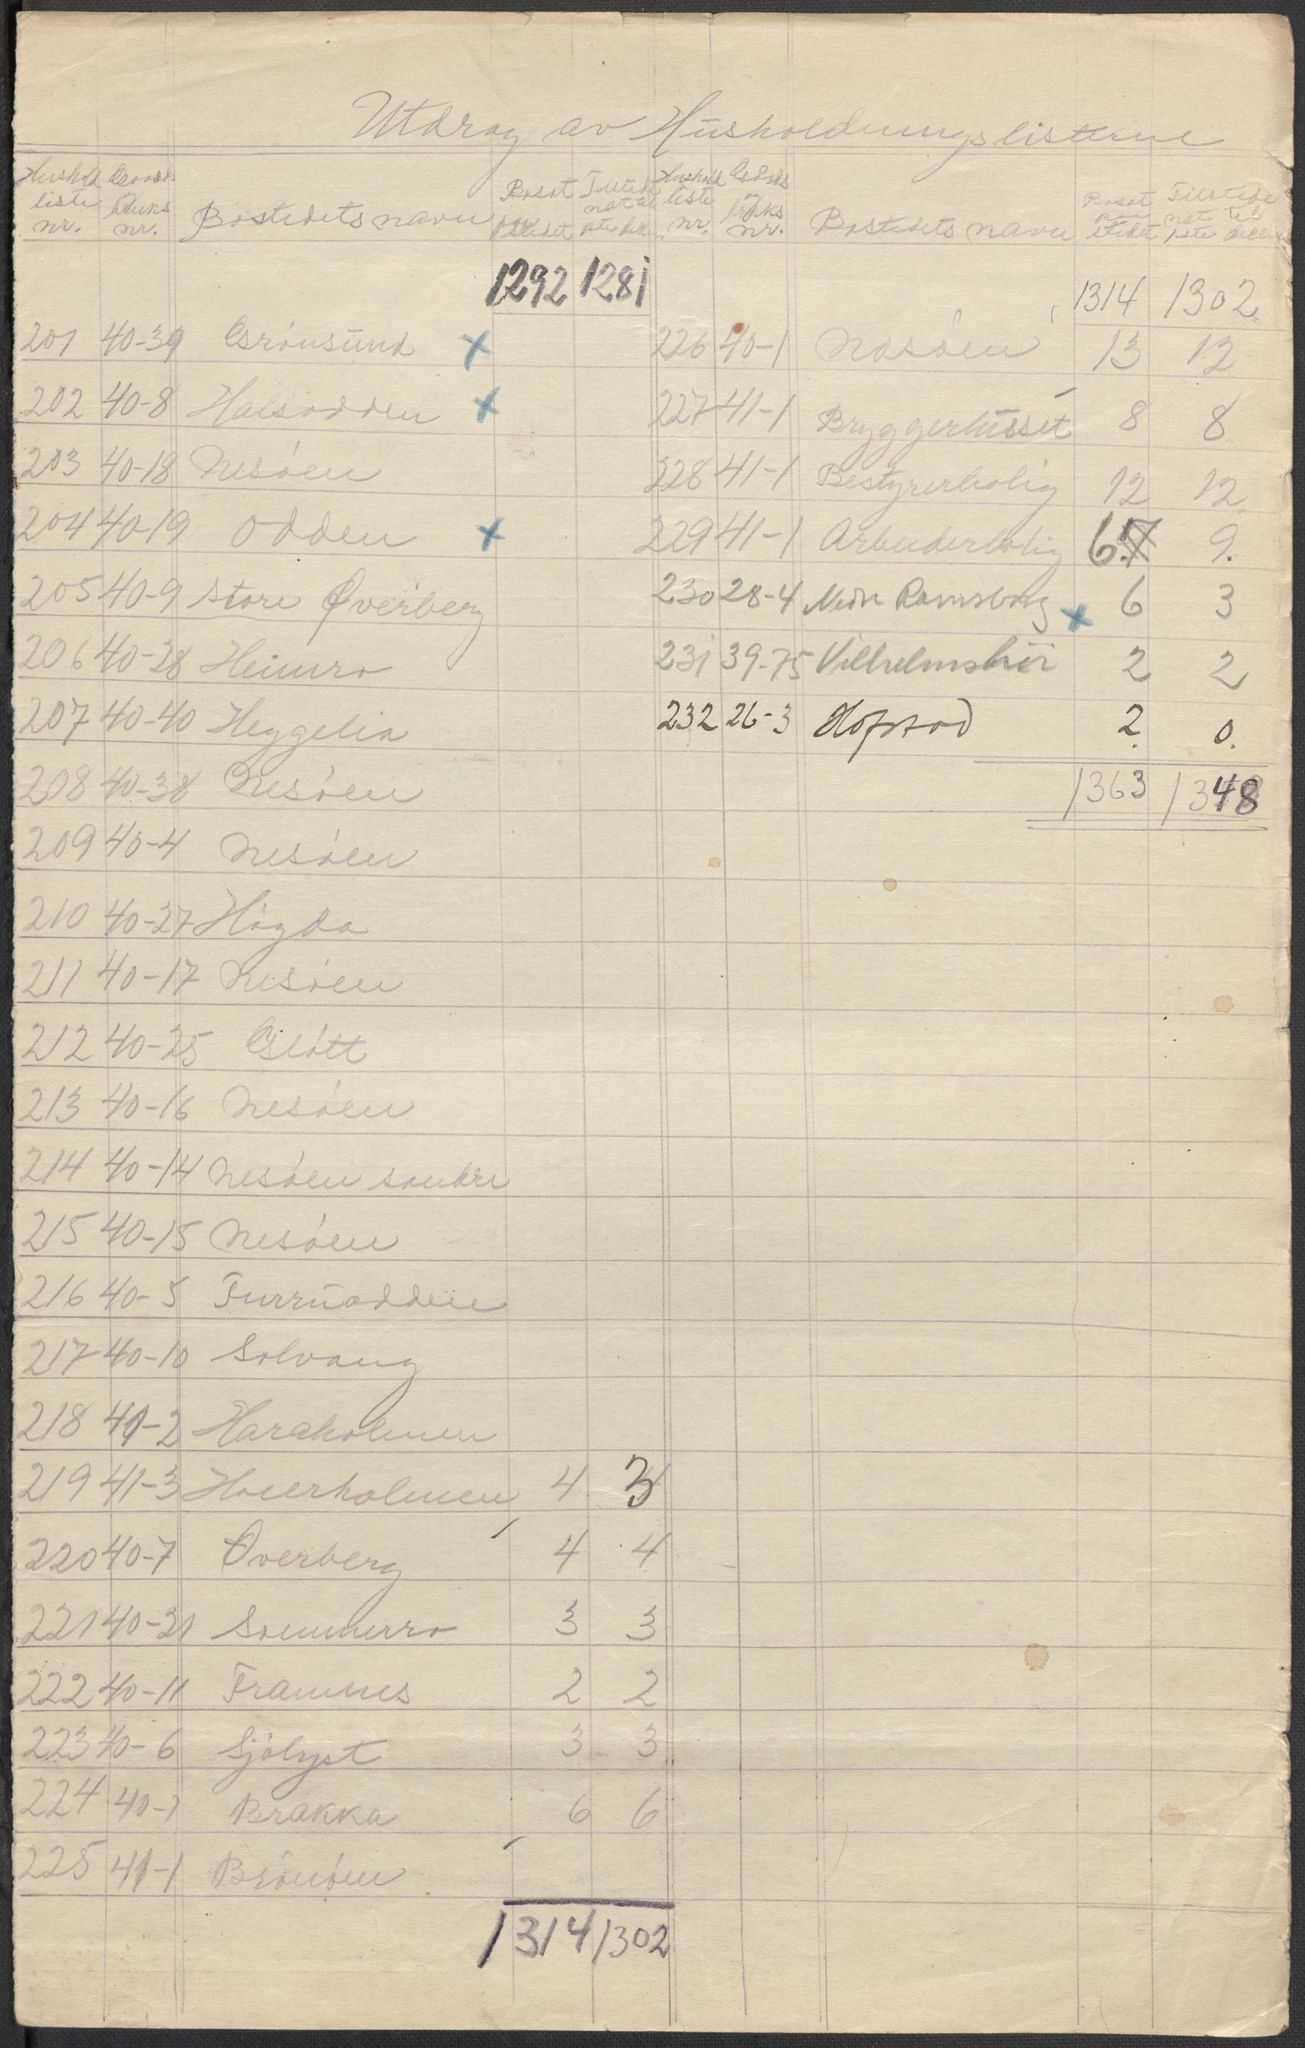 Utdrag av Husholdningslisterne
Hushold liste nr. Gaards bruks nr. Bostedets navn Bosat paa stedet Tilstede nat til
1292 1281
201 40-39 Grönsund x
202 40-8 Halsodden x
203 40-18 Nesöen
204 40-19 Odden x
205 40-9 Store Øverberg
206 40-28 Heimro
207 40-40 Heggelia
208 40-38 Nesöen
209 40-4 Nesöen
210 40-27 Högda
211 40-17 Nesöen
212 40-25 Glött
213 40-16 Nesöen
214 40-14 Nesöen söndre
215 40-15 Nesöen
216 40-5 Furruodden
217 40-10 Solvang
218 41-2 Haraholmen
219 41-3 4 3
220 40-7 Överberg 4 4
221 40-21 Sommerro 3 3
222 40-11 Framnes 2 2
223 40-6 Sjölyst 3 3
224 40-1 Brakka 6 6
225 41-1 Brönöen
1314 1302
Hushold liste nr. Gaards bruks nr. Bostedets navn Bosat paa stedet Tilstede nat til
1314 1302
226 40-1 Nesöen 13 12
227 41-1 Bryggerhuset 8 8
228 41-1 Bestyrerbolig 12 12
229 41-1 Arbeiderbolig 6 9
230 28-4 Nedr Ramsborg x 6 3
231 39-75 Vilhelmshöi 2 2
232 26-3 Hofstad 2 0
1363 1348